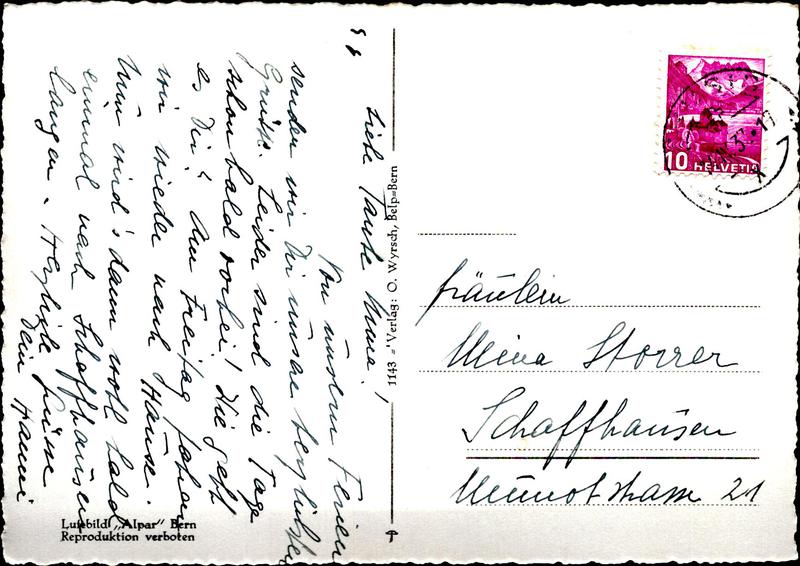 Liebe Tante Mina!
Von unsern Ferien
senden wir Dir unsere herzlichsten
Grüsse. Leider sind die Tage
schon bald vorbei! Wie geht
es Dir? Am Freitag fahren
wir wieder nach Hause.
Nun wird's dann wohl bald
einmal nach Schaffhausen
langen. Herzliche Grüsse
Dein Hanni
1143 = Verlag: O. Wyrsch, Belp=Bern
Luftbild „Alpar" Bern
Reproduktion verboten
10 HELVETIA
Fräulein
Mina Storrer
Schaffhausen
Munotstrasse 21